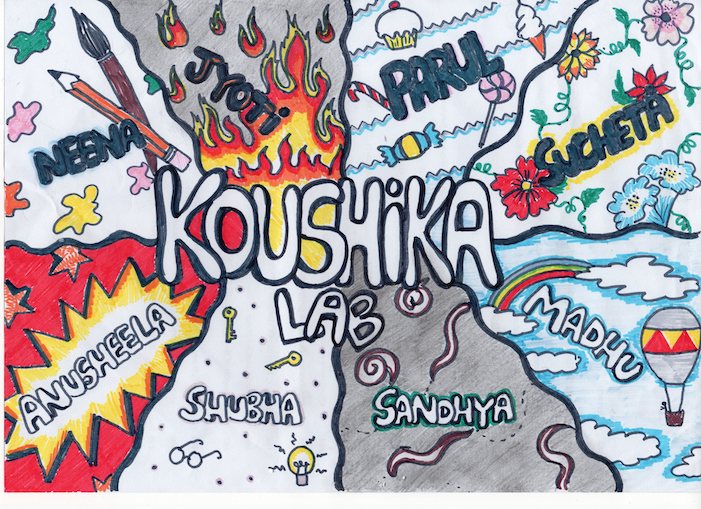 NEENA
JYOTi
PARUL
SUCHETA
KOUSHiKA
LAB
ANUSHEELA
SHUBHA
SANDHYA
MADHU